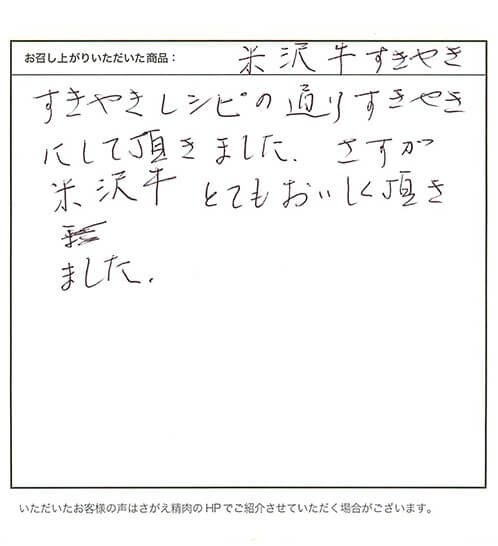 お召し上がりいただいた商品： 米沢牛すきやき
すきやきレシピの通りすきやき
にして頂きました. さすが
米沢牛 とてもおいしく頂き
ました.
いただいたお客様の声はさがえ精肉のHPでご紹介させていただく場合がございます。